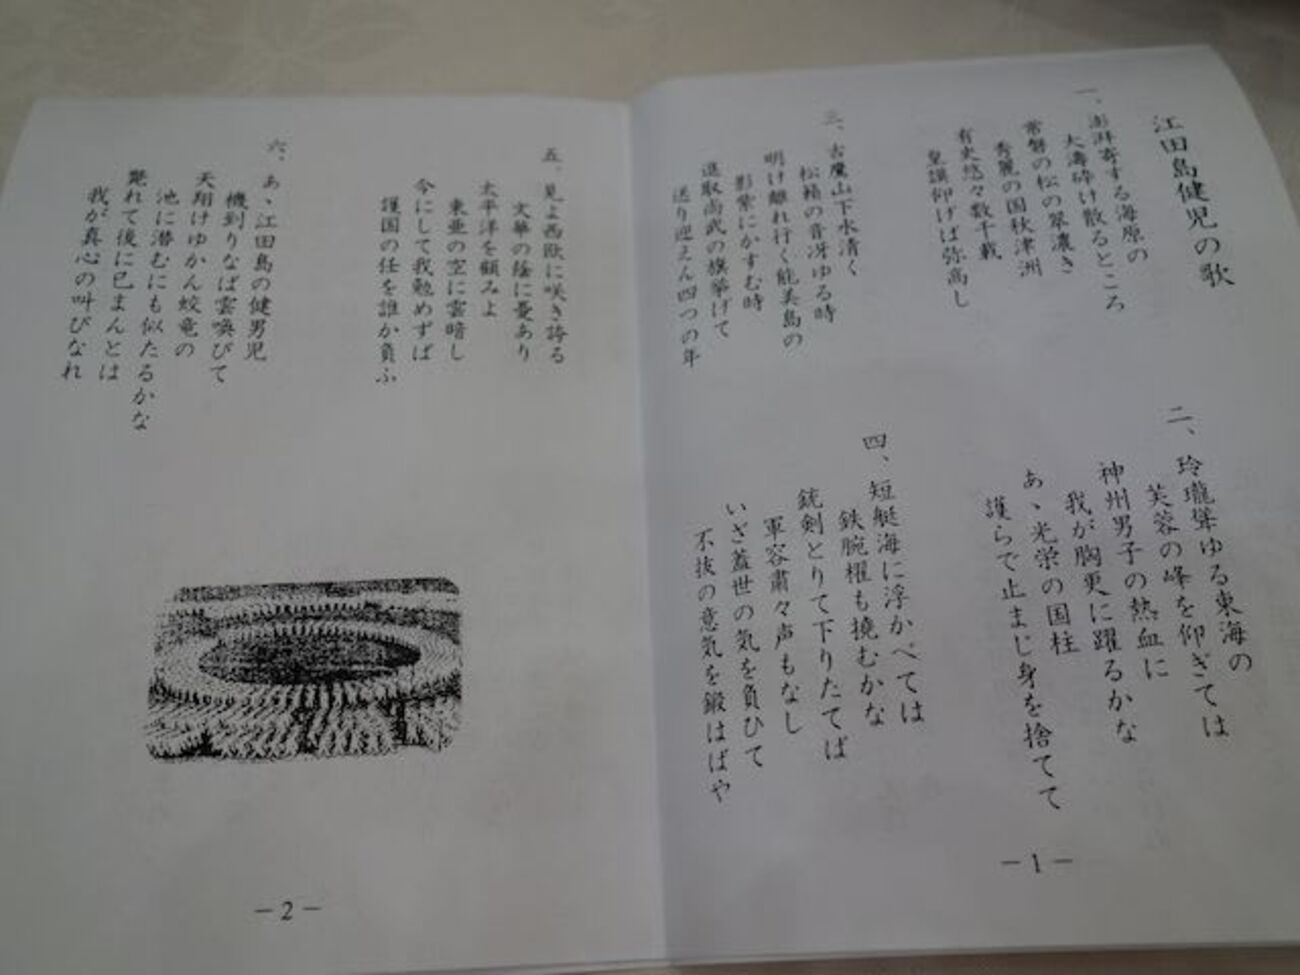 江田島健児の歌
一、澎湃寄する海原の
大濤砕け散るところ
常磐の松の翠濃き
秀麗の国秋津洲
有史悠々数千載
皇謨仰げば弥高し
二、玲瓏聳ゆる東海の
芙蓉の峰を仰ぎては
神州男子の熱血に
我が胸更に躍るかな
あゝ光栄の国柱
護らで止まじ身を捨てて
三、古鷹山下水清く
松籟の音冴ゆる時
明け離れ行く能美島の
影紫にかすむ時
進取尚武の旗挙げて
送り迎えん四つの年
四、短艇海に浮かべては
鉄腕櫂も撓むかな
銃剣とりて下りたてば
軍容粛々声もなし
いざ蓋世の気を負ひて
不抜の意気を鍛はばや
－1－
五、見よ西欧に咲き誇る
文華の蔭に憂あり
太平洋を顧みよ
東亜の空に雲暗し
今にして我勉めずば
護国の任を誰か負ふ
六、あゝ江田島の健男児
機到りなば雲喚びて
天翔けゆかん蛟竜の
池に潜むにも似たるかな
斃れて後に已まんとは
我が真心の叫びなれ
－2－